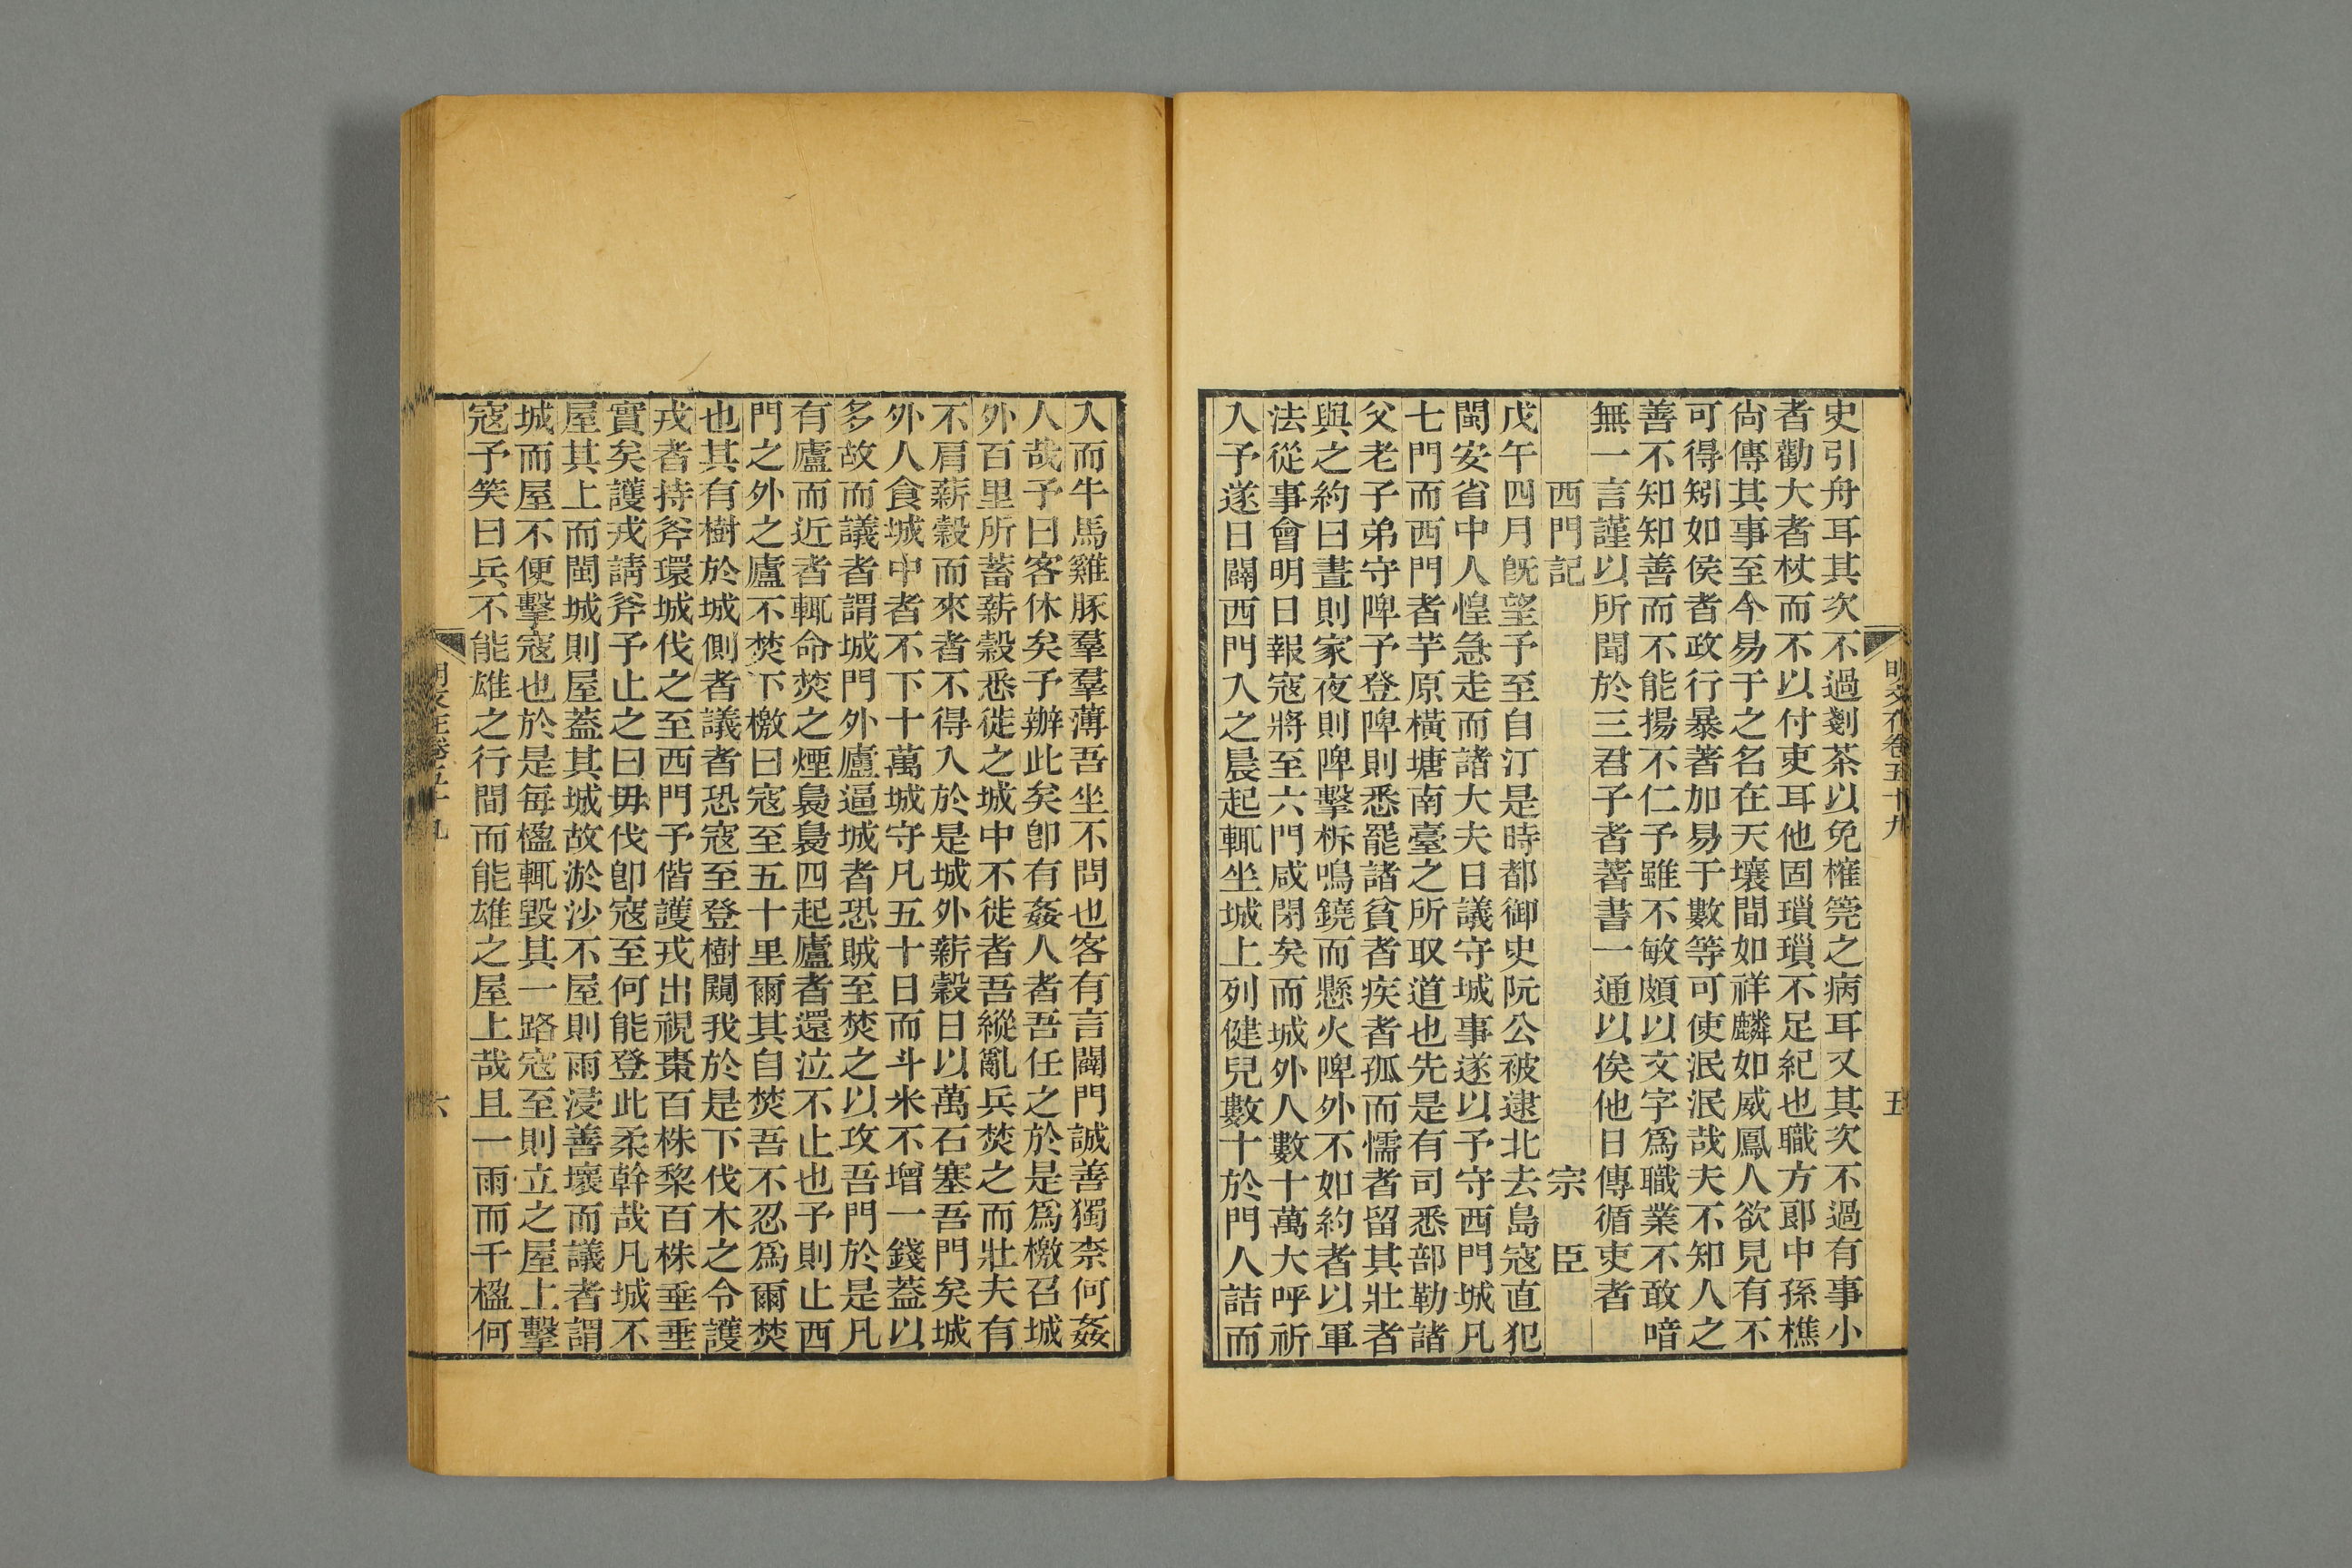 明文在卷五十九
五
史引舟耳其次不過剗茶以免榷筦之病耳又其次不過有事小
者勸大者杖而不以付吏耳他固瑣瑣不足紀也職方郎中孫樵
尙傳其事至今易于之名在天壤間如祥麟如威鳳人欲見有不
可得矧如侯者政行暴著加易于數等可使泯泯哉夫不知人之
善不知知善而不能揚不仁予雖不敏頗以文字爲職業不敢喑
無一言謹以所聞於三君子者著書一通以俟他日傳循吏者
西門記　宗臣
戊午四月旣望予至自汀是時都御史阮公被逮北去島寇直犯
閩安省中人惶急走而諸大夫日議守城事遂以予守西門城凡
七門而西門者芋原橫塘南臺之所取道也先是有司悉部勒諸
父老子弟守陴予登陴則悉罷諸貧者疾者孤而懦者留其壯者
與之約曰晝則家夜則陴擊柝鳴鐃而懸火陴外不如約者以軍
法從事會明日報寇將至六門咸閉矣而城外人數十萬大呼祈
入予遂日闢西門入之晨起輒坐城上列健兒數十於門人詰而
入而牛馬雞豚羣羣薄吾坐不問也客有言闢門誠善獨柰何姦
人哉予曰客休矣予辦此矣卽有姦人者吾任之於是爲檄召城
外百里所蓄薪穀悉徙之城中不徙者吾縱亂兵焚之而壯夫有
不肩薪穀而來者不得入於是城外薪穀日以萬石塞吾門矣城
外人食城中者不下十萬城守凡五十日而斗米不增一錢蓋以
多故而議者謂城門外廬逼城者恐賊至焚之以攻吾門於是凡
有廬而近者輒命焚之煙裊裊四起廬者還泣不止也予則止西
門之外之廬不焚下檄曰寇至五十里爾其自焚吾不忍爲爾焚
也其有樹於城側者議者恐寇至登樹闚我於是下伐木之令護
戎者持斧環城伐之至西門予偕護戎出視棗百株棃百株垂垂
實矣護戎請斧予止之曰毋伐卽寇至何能登此柔幹哉凡城不
屋其上而閩城則屋蓋其城故淤沙不屋則雨浸善壞而議者謂
城而屋不便擊寇也於是每楹輒毀其一路寇至則立之屋上擊
寇予笑曰兵不能雄之行間而能雄之屋上哉且一雨而千楹何
明文在卷五十九
六